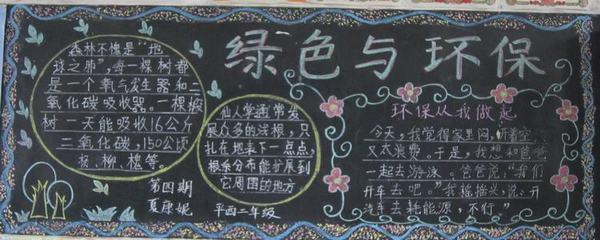 绿色与环保
森林不愧是“地
球之肺”,每一棵树都
是一个氧气发生器和二
氧化碳吸收器。一棵椴
树一天能吸收16公斤
二氧化碳,150公顷
杨、柳、槐等。
第四期
夏康妮
仙人掌通常发
展众多的浅根,只
扎在地表下一点点,
根系分布能扩展到
它周围的地方
平西二年级
环保从我做起
今天,我觉得家里闷,听着空
又太浪费。于是,我想和爸爸
一起去游泳。爸爸说:“我们
开车去吧。”我摇摇头,说:“开
汽车去耗能源,不行。”